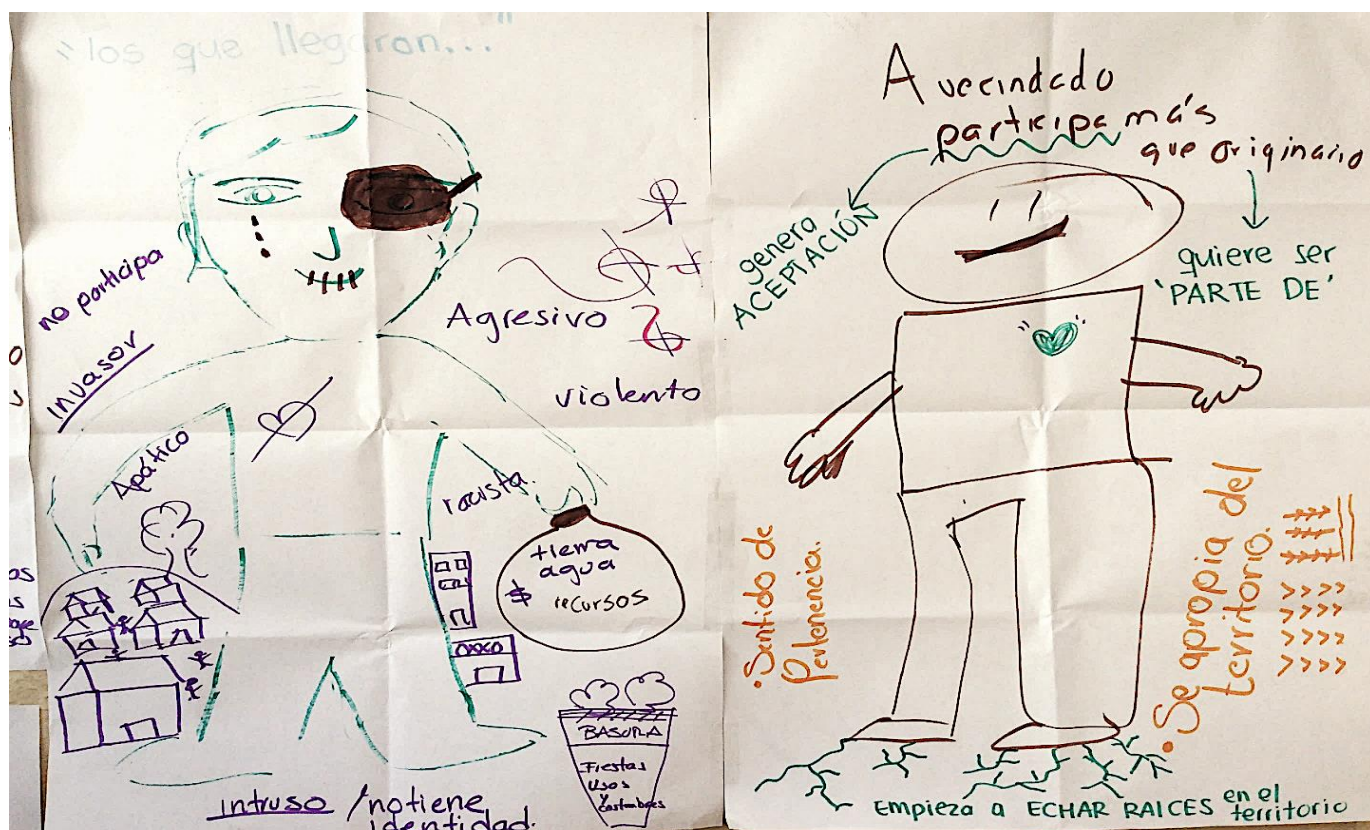 "los que llegaron..."
no participa
invasor
Apático
Agresivo
violento
racista.
tierra
agua
$ recursos
OXXO
BASURA
Fiestas
Usos
y
Costumbres
intruso / no tiene
identidad.
Avecindado
participa más
que originario
genera
ACEPTACIÓN
quiere ser
'PARTE DE'
• Sentido de
Pertenencia.
• Se apropia del
territorio.
Empieza a ECHAR RAICES en el
territorio